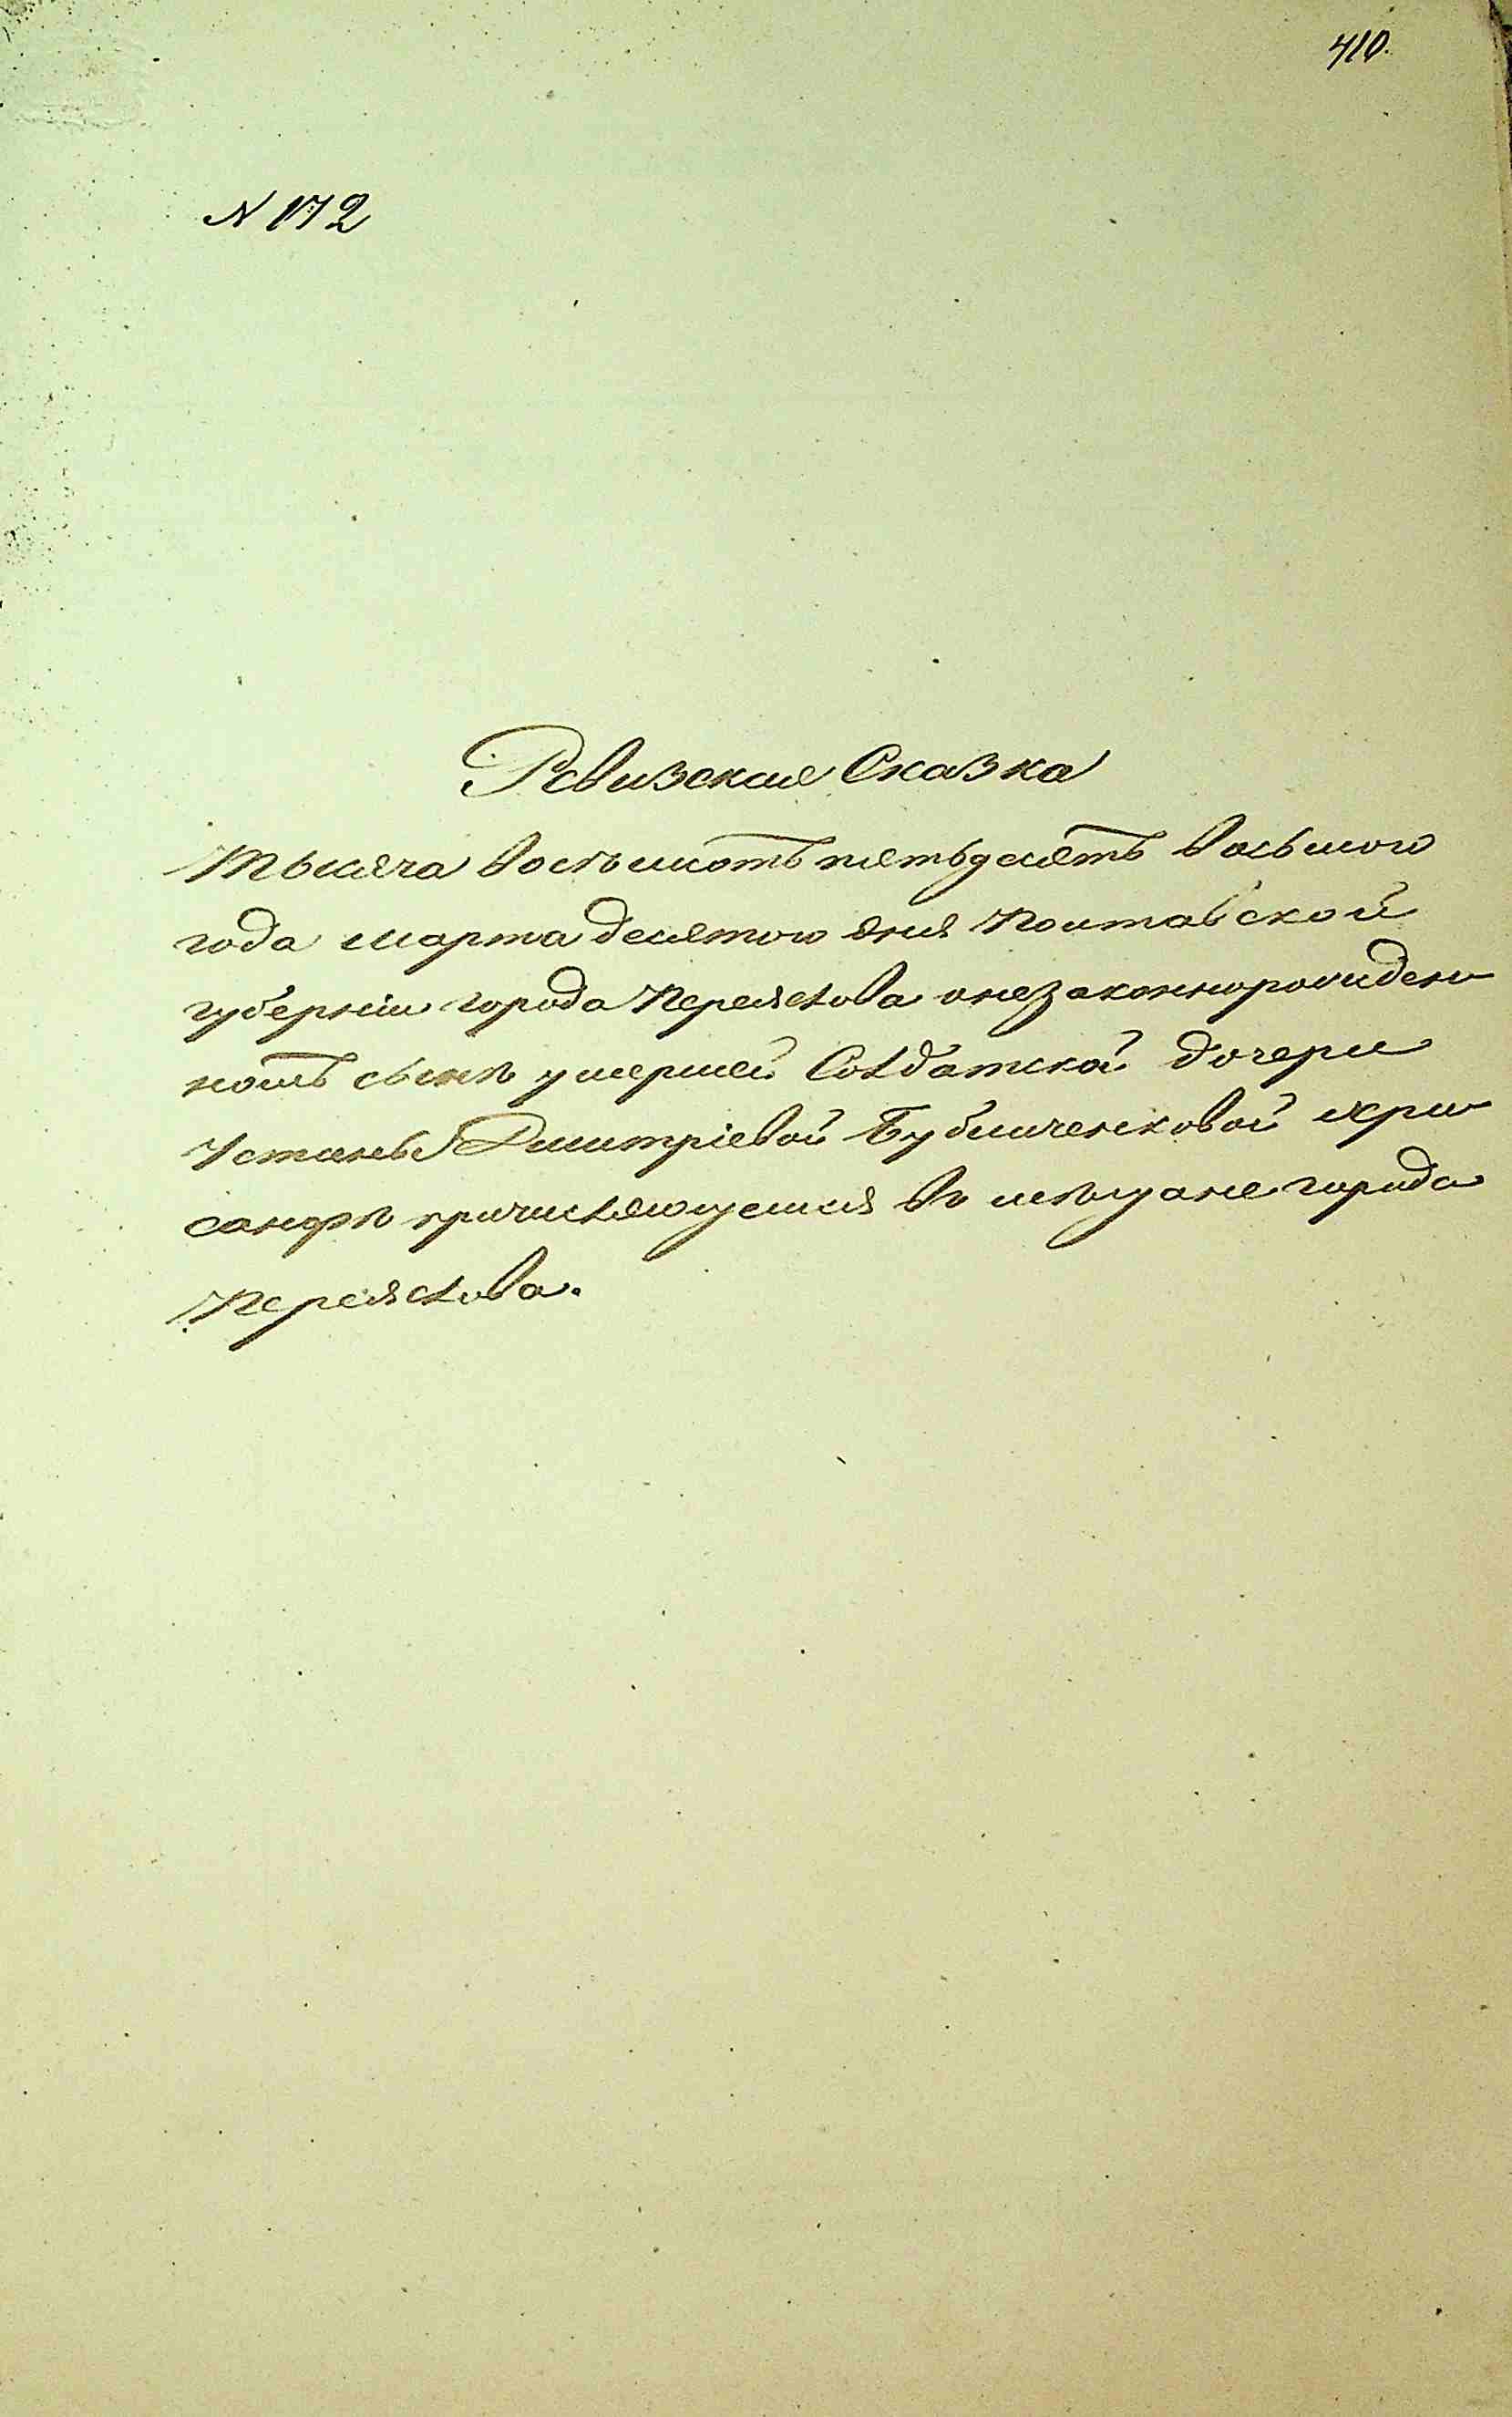 410.
N 172
Ревизская Сказка
Тысяча восѣмъсотъ пятьдесятъ восьмого
года марта десятого дня Полтавской
губерніи города Переяслова онезаконнорожден
номъ сынѣ умершей Солдатской дочери
Устиньи Димитріевой Бубличенковой Хри
санфѣ причисляющемся въ мѣщане города
Переяслова.